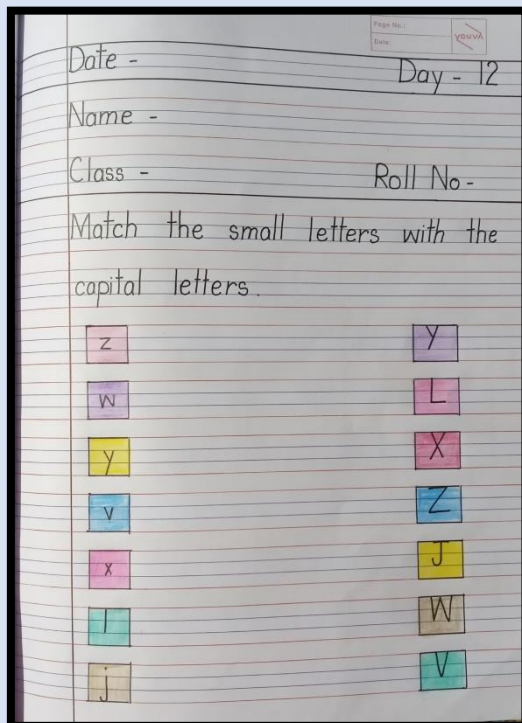 Page No.:
Date:
youva
Date -
Day - 12
Name -
Class -
Roll No -
Match the small letters with the
capital letters.
z Y
w L
y X
v Z
x J
l W
j V